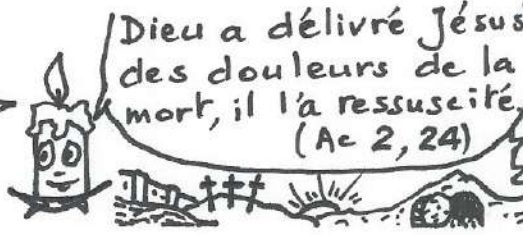 Dieu a délivré Jésus
des douleurs de la
mort, il l'a ressuscité,
(Ac 2, 24)